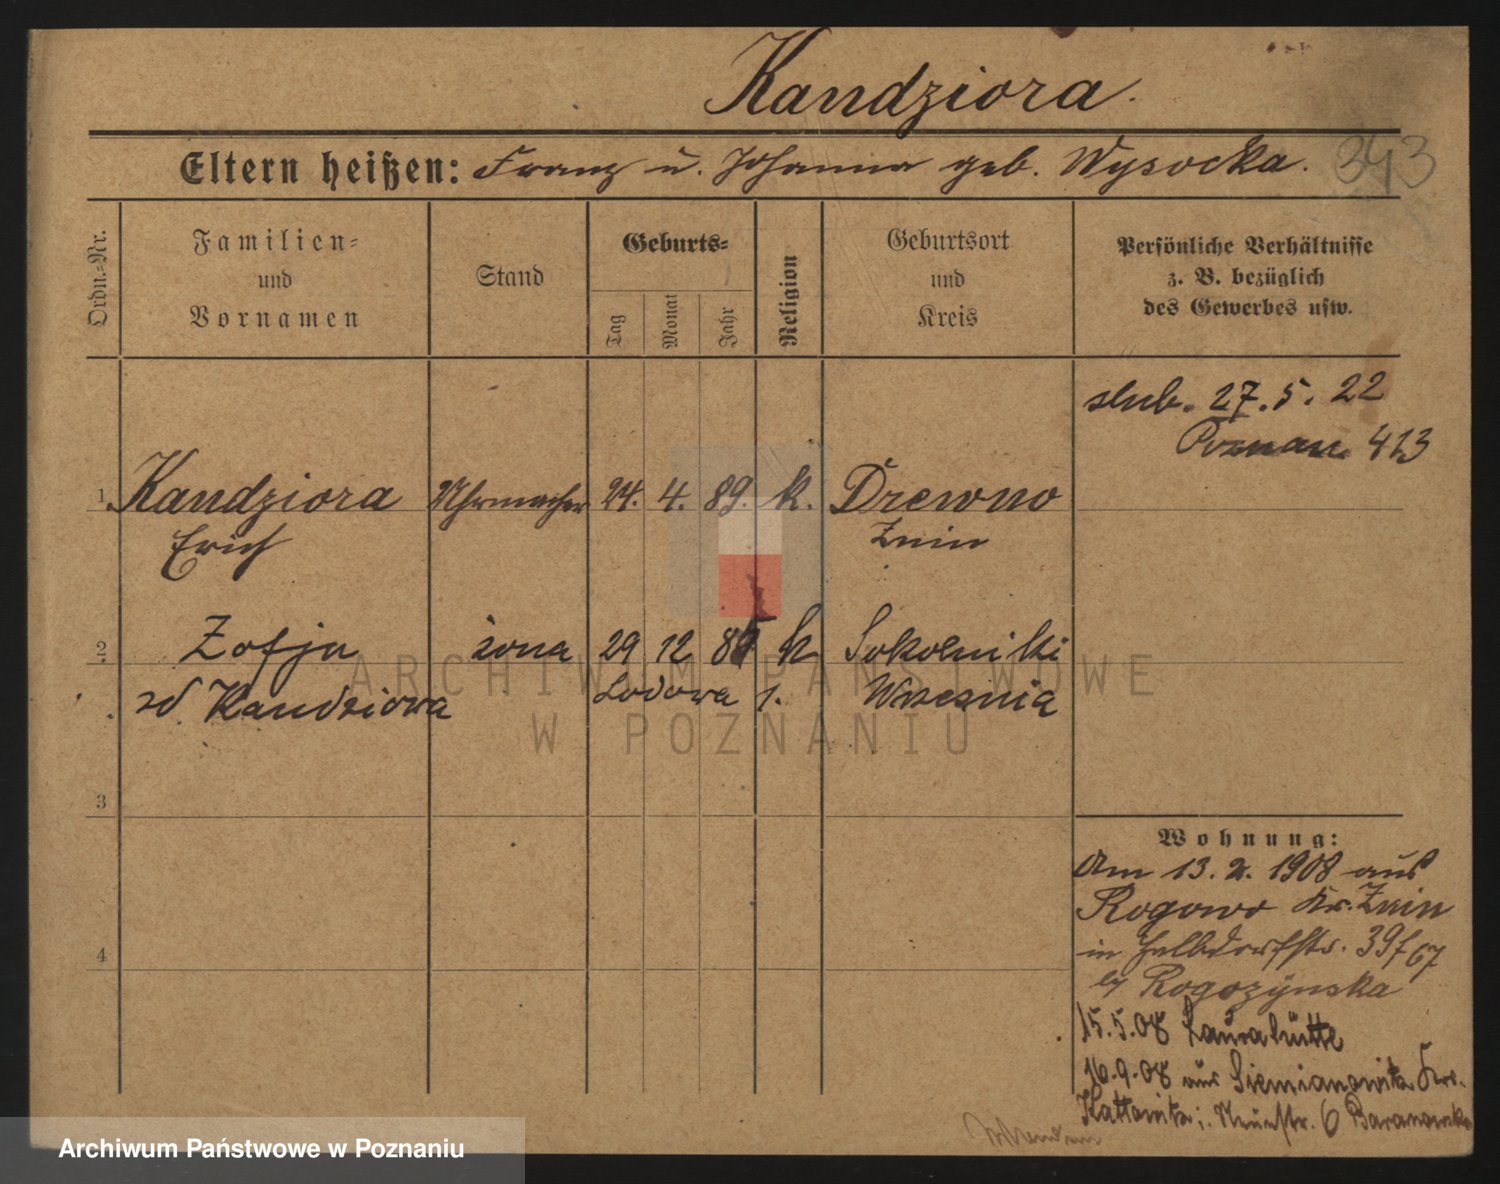 Kandziora.
Eltern heißen: Franz u. Johanna geb. Wysocka. 343
Ordn.-Nr.
Familien-
und
Vornamen
Stand
Geburts-
Tag
Monat
Jahr
Religion
Geburtsort
und
Kreis
Persönliche Verhältnisse
z. B. bezüglich
des Gewerbes usw.
slub. 27.5.22
Poznan 413
1 Kandziora Uhrmacher 24. 4. 89. k. Drewno
Erich Znin
2 Zofja żona 29 12 k Sokolniki
zd Kandziora Lodowa 1. Wrzesnia
3
4
Wohnung:
Am 13.2.1908 aus
Rogowo Kr. Znin
in Halbdorfstr. 39f67
by Rogozynska
15.5.08 Laurahütte
16.9.08 aus Siemianowitz Krs.
Kattowitz i. Neuestr. 6 Baranowska
ARCHIWUM PAŃSTWOWE
W POZNANIU
Archiwum Państwowe w Poznaniu